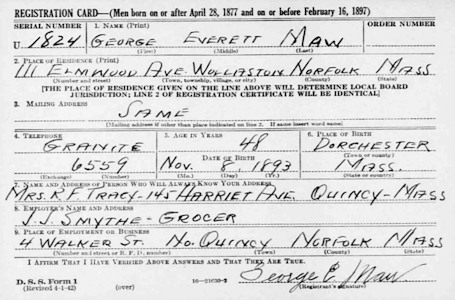 REGISTRATION CARD—(Men born on or after April 28, 1877 and on or before February 16, 1897)
SERIAL NUMBER 1. NAME (Print) ORDER NUMBER
U 1824 GEORGE EVERETT MAW
(First) (Middle) (Last)
2. PLACE OF RESIDENCE (Print)
111 ELMWOOD AVE. WOLLASTON NORFOLK MASS
(Number and street) (Town, township, village, or city) (County) (State)
[THE PLACE OF RESIDENCE GIVEN ON THE LINE ABOVE WILL DETERMINE LOCAL BOARD
JURISDICTION; LINE 2 OF REGISTRATION CERTIFICATE WILL BE IDENTICAL]
3. MAILING ADDRESS
SAME
[Mailing address if other than place indicated on line 2. If same insert word same]
4. TELEPHONE 5. AGE IN YEARS 6. PLACE OF BIRTH
GRANITE 48 DORCHESTER
DATE OF BIRTH (Town or county)
6559 NOV. 8, 1893 MASS.
(Exchange) (Number) (Mo.) (Day) (Yr.) (State or country)
7. NAME AND ADDRESS OF PERSON WHO WILL ALWAYS KNOW YOUR ADDRESS
MRS. R.F. TRACY-145 HARRIET AVE. QUINCY-MASS
8. EMPLOYER'S NAME AND ADDRESS
J.J. SMYTHE-GROCER
9. PLACE OF EMPLOYMENT OR BUSINESS
4 WALKER ST. NO. QUINCY NORFOLK MASS
(Number and street or R. F. D. number) (Town) (County) (State)
I AFFIRM THAT I HAVE VERIFIED ABOVE ANSWERS AND THAT THEY ARE TRUE.
D. S. S. Form 1
(Revised 4-1-42) (over) 16-21630-2 George E. Maw
(Registrant's signature)